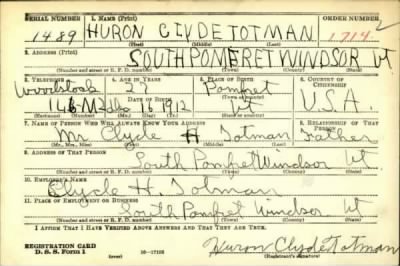 SERIAL NUMBER 1. NAME (Print) ORDER NUMBER
1489 HURON CLYDE TOTMAN 1714
(First) (Middle) (Last)
2. ADDRESS (Print)
SOUTH POMFRET WINDSOR Vt
(Number and street or R. F. D. number) (Town) (County) (State)
3. TELEPHONE 4. AGE IN YEARS 5. PLACE OF BIRTH 6. COUNTRY OF CITIZENSHIP
Woodstock 27 Pomfret
DATE OF BIRTH
146 M2 16 1912 Vt U.S.A.
(Exchange) (Number) (Mo.) (Day) (Yr.) (State or country)
7. NAME OF PERSON WHO WILL ALWAYS KNOW YOUR ADDRESS 8. RELATIONSHIP OF THAT PERSON
Mr Clyde H Totman Father
(Mr., Mrs., Miss) (First) (Middle) (Last)
9. ADDRESS OF THAT PERSON
South Pomfret Windsor Vt.
(Number and street or R. F. D. number) (Town) (County) (State)
10. EMPLOYER'S NAME
Clyde H. Totman
11. PLACE OF EMPLOYMENT OR BUSINESS
South Pomfret Windsor Vt
(Number and street or R. F. D. number) (Town) (County) (State)
I AFFIRM THAT I HAVE VERIFIED ABOVE ANSWERS AND THAT THEY ARE TRUE.
REGISTRATION CARD
D. S. S. Form 1 16-17105 Huron Clyde Totman
(over) (Registrant's signature)